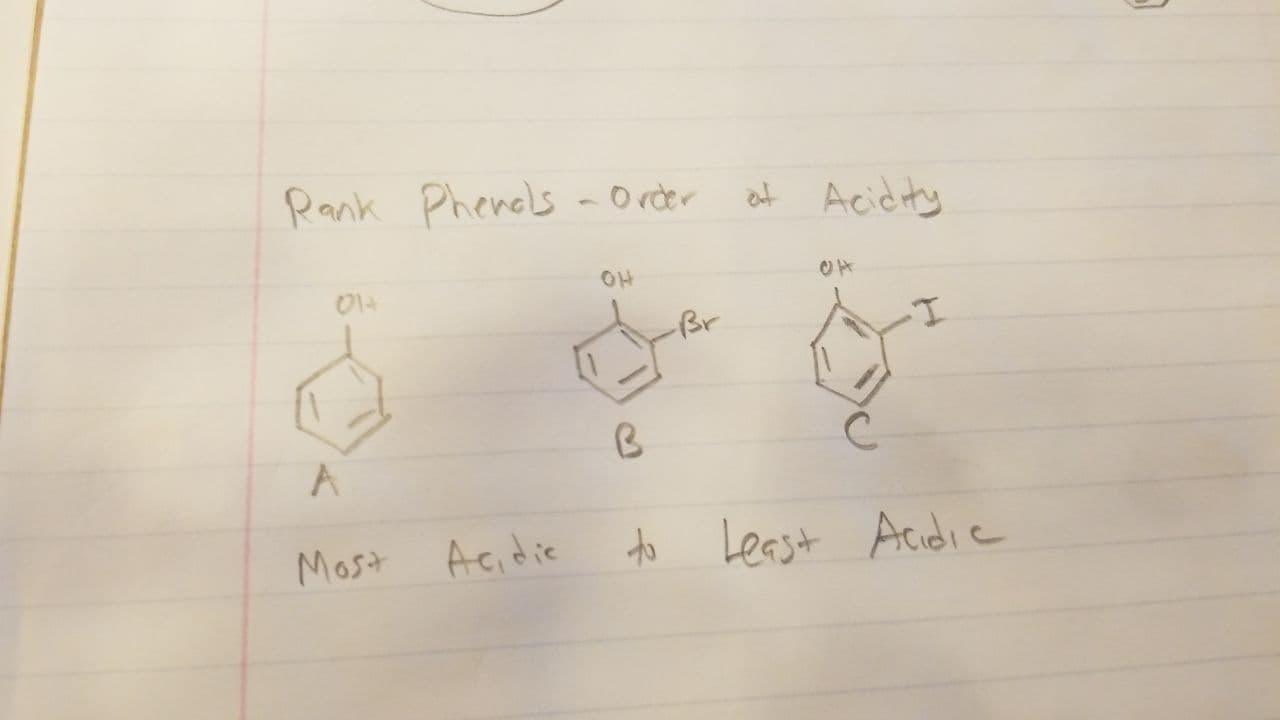 Rank Phenols - Order of Acidity
OH OH OH
Br I
A B C
Most Acidic to Least Acidic